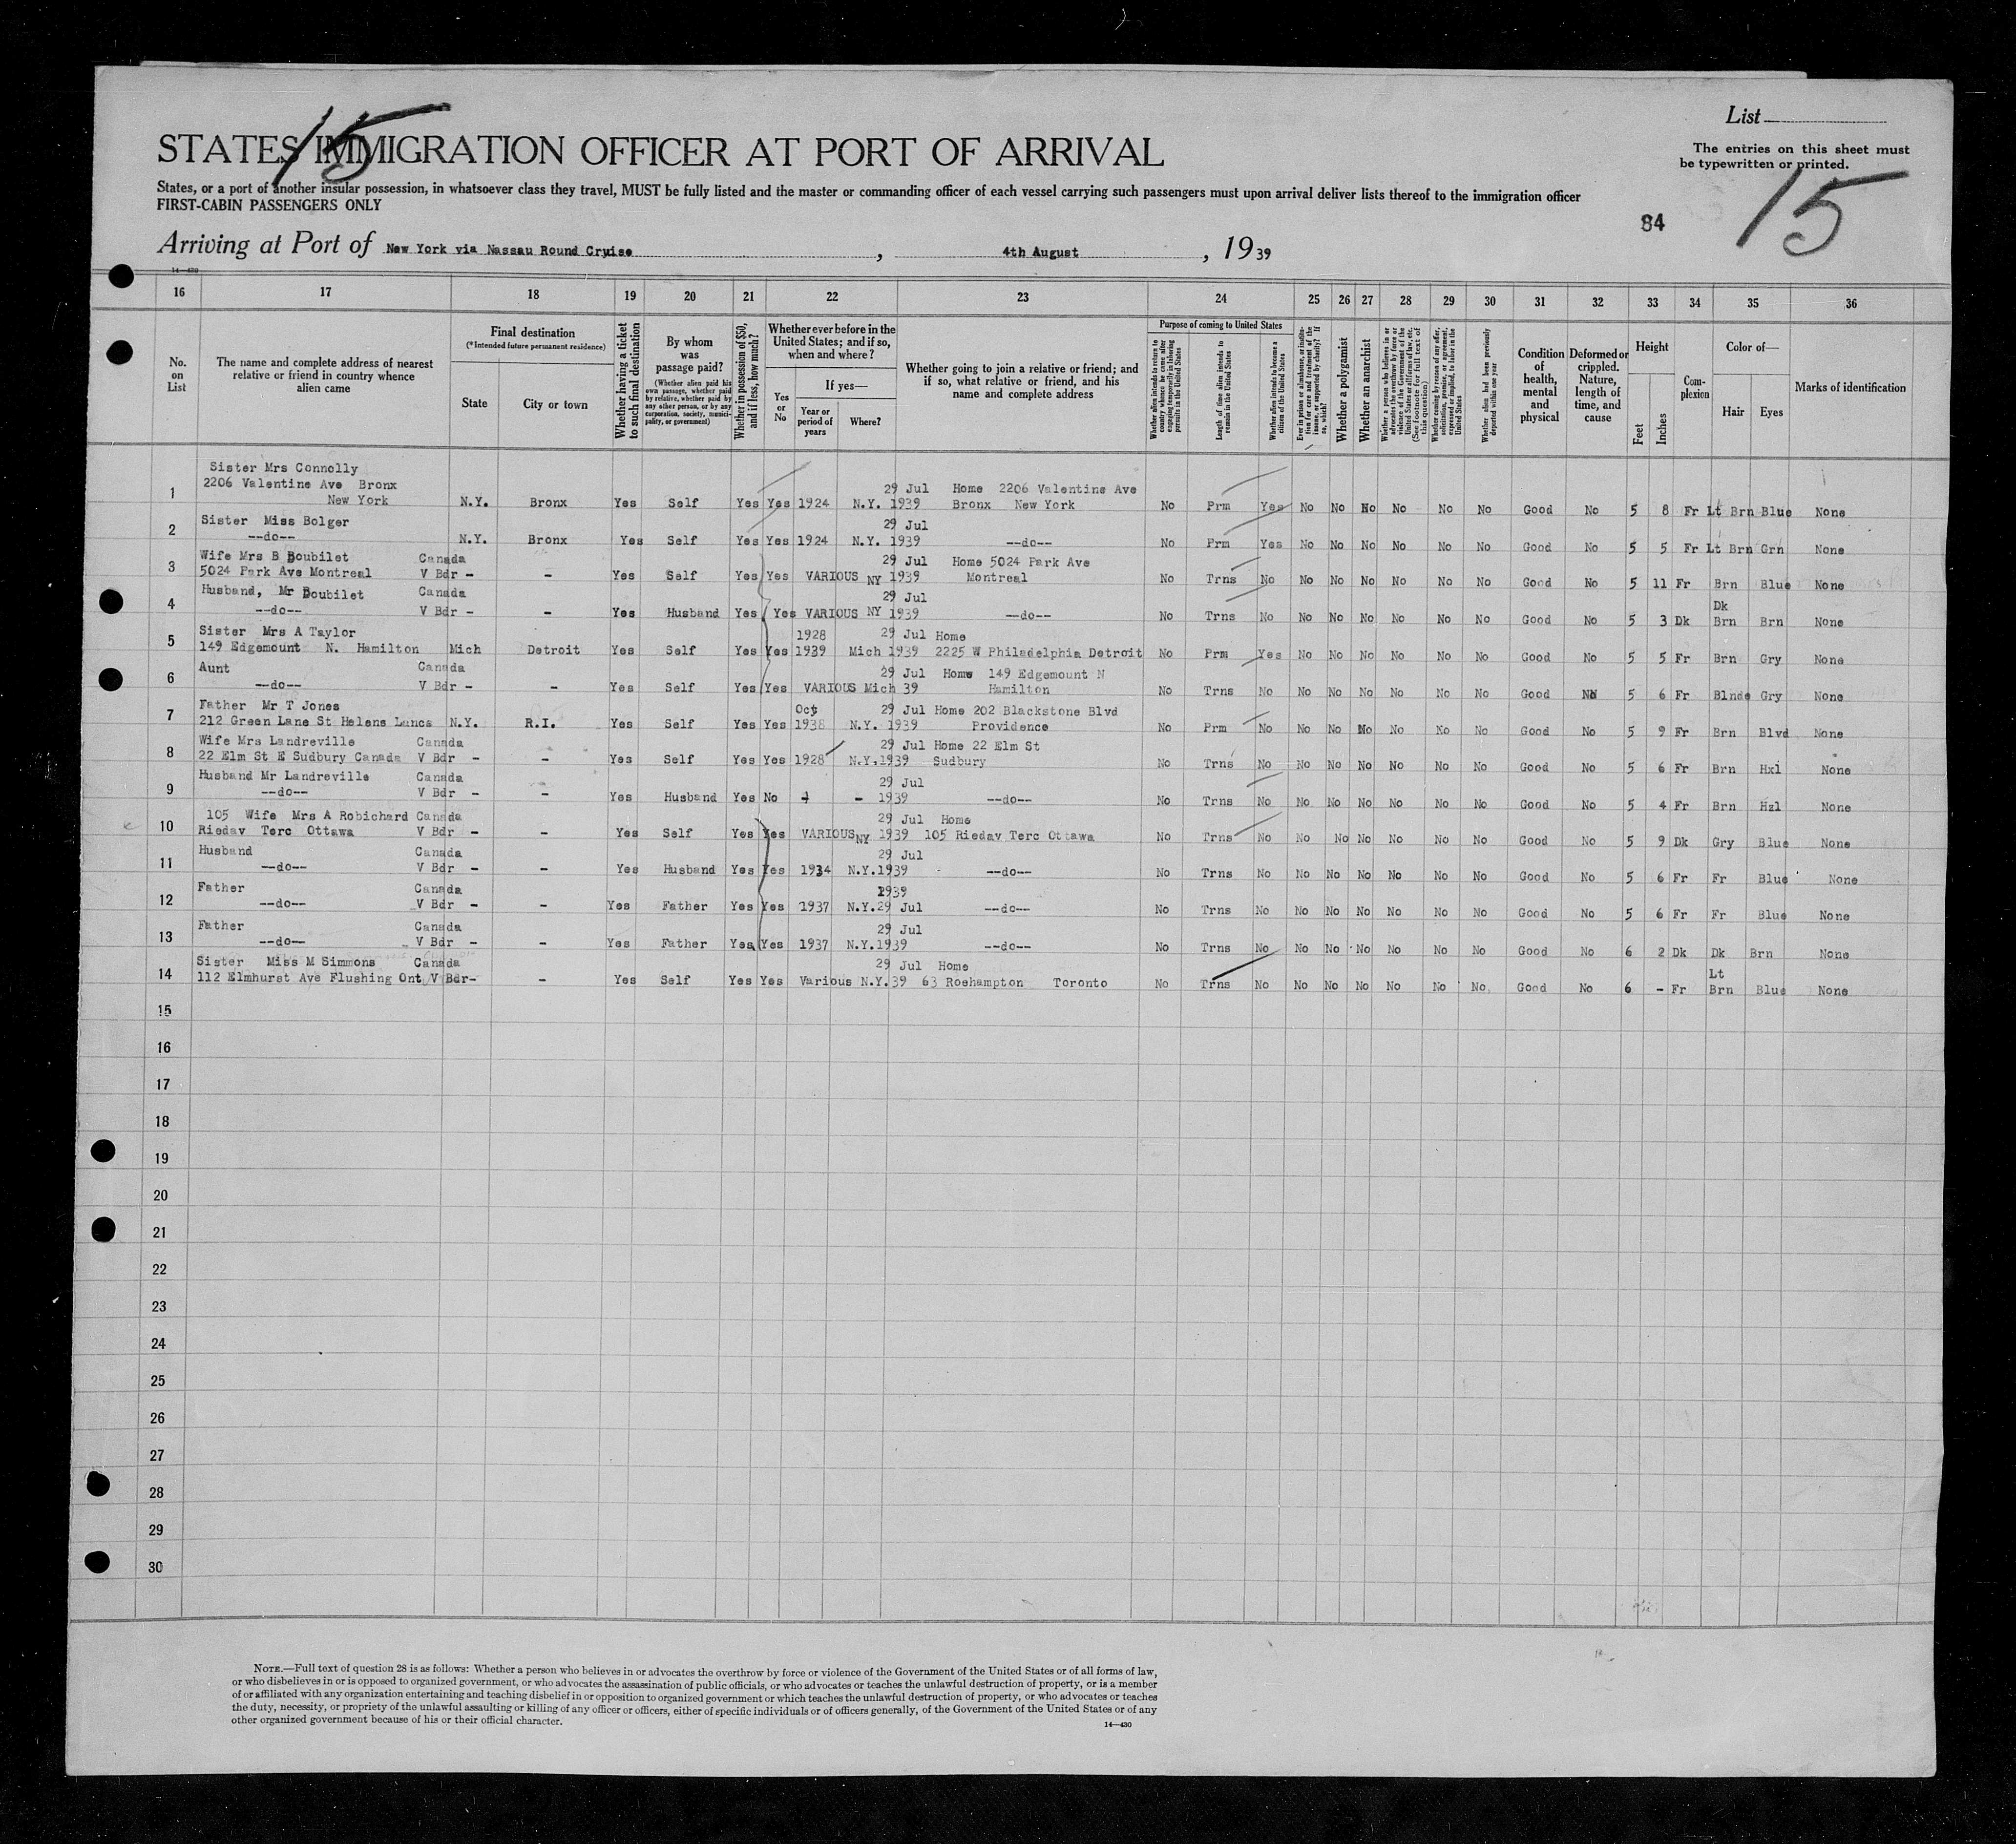 List
15
STATES IMMIGRATION OFFICER AT PORT OF ARRIVAL
The entries on this sheet must
be typewritten or printed.
States, or a port of another insular possession, in whatsoever class they travel, MUST be fully listed and the master or commanding officer of each vessel carrying such passengers must upon arrival deliver lists thereof to the immigration officer
FIRST-CABIN PASSENGERS ONLY
84
15
Arriving at Port of New York via Nassau Round Cruise, 4th August, 1939
14—430
16 17 18 19 20 21 22 23 24 25 26 27 28 29 30 31 32 33 34 35 36
No. on List
The name and complete address of nearest relative or friend in country whence alien came
Final destination
(*Intended future permanent residence)
State
City or town
Whether having a ticket to such final destination
By whom was passage paid?
(Whether alien paid his own passage, whether paid by relative, whether paid by any other person, or by any corporation, society, municipality, or government)
Whether in possession of $50, and if less, how much?
Whether ever before in the United States; and if so, when and where?
Yes or No
If yes—
Year or period of years
Where?
Whether going to join a relative or friend; and if so, what relative or friend, and his name and complete address
Purpose of coming to United States
Whether alien intends to return to country whence he came after engaging temporarily in laboring pursuits in the United States
Length of time alien intends to remain in the United States
Whether alien intends to become a citizen of the United States
Ever in prison or almshouse, or institution for care and treatment of the insane, or supported by charity? If so, which?
Whether a polygamist
Whether an anarchist
Whether a person who believes in or advocates the overthrow by force or violence of the Government of the United States or all forms of law, etc. (See footnote for full text of this question)
Whether coming by reason of any offer, solicitation, promise, or agreement, expressed or implied, to labor in the United States
Whether alien had been previously deported within one year
Condition of health, mental and physical
Deformed or crippled. Nature, length of time, and cause
Height
Feet
Inches
Complexion
Color of—
Hair
Eyes
Marks of identification
Sister Mrs Connolly
2206 Valentine Ave Bronx 29 Jul Home 2206 Valentine Ave
1 New York N.Y. Bronx Yes Self Yes Yes 1924 N.Y. 1939 Bronx New York No Prm Yes No No No No No No Good No 5 8 Fr Lt Brn Blue None
Sister Miss Bolger 29 Jul
2 --do-- N.Y. Bronx Yes Self Yes Yes 1924 N.Y. 1939 --do-- No Prm Yes No No No No No No Good No 5 5 Fr Lt Brn Grn None
Wife Mrs B Boubilet Canada 29 Jul Home 5024 Park Ave
3 5024 Park Ave Montreal V Bdr - - Yes Self Yes Yes VARIOUS NY 1939 Montreal No Trns No No No No No No No Good No 5 11 Fr Brn Blue None
Husband, Mr Boubilet Canada 29 Jul Dk
4 --do-- V Bdr - - Yes Husband Yes Yes VARIOUS NY 1939 --do-- No Trns No No No No No No No Good No 5 3 Dk Brn Brn None
Sister Mrs A Taylor 1928 29 Jul Home
5 149 Edgemount N. Hamilton Mich Detroit Yes Self Yes Yes 1939 Mich 1939 2225 W Philadelphia Detroit No Prm Yes No No No No No No Good No 5 5 Fr Brn Gry None
Aunt Canada 29 Jul Home 149 Edgemount N
6 --do-- V Bdr - - Yes Self Yes Yes VARIOUS Mich 39 Hamilton No Trns No No No No No No No Good No 5 6 Fr Blnde Gry None
Father Mr T Jones Oct 29 Jul Home 202 Blackstone Blvd
7 212 Green Lane St Helens Lancs N.Y. R.I. Yes Self Yes Yes 1938 N.Y. 1939 Providence No Prm No No No No No No No Good No 5 9 Fr Brn Blvd None
Wife Mrs Landreville Canada 29 Jul Home 22 Elm St
8 22 Elm St E Sudbury Canada V Bdr - - Yes Self Yes Yes 1928 N.Y. 1939 Sudbury No Trns No No No No No No No Good No 5 6 Fr Brn Hxl None
Husband Mr Landreville Canada 29 Jul
9 --do-- V Bdr - - Yes Husband Yes No - - 1939 --do-- No Trns No No No No No No No Good No 5 4 Fr Brn Hzl None
105 Wife Mrs A Robichard Canada 29 Jul Home
10 Riedav Terc Ottawa V Bdr - - Yes Self Yes Yes VARIOUS NY 1939 105 Riedav Terc Ottawa No Trns No No No No No No No Good No 5 9 Dk Gry Blue None
Husband Canada 29 Jul
11 --do-- V Bdr - - Yes Husband Yes Yes 1934 N.Y. 1939 --do-- No Trns No No No No No No No Good No 5 6 Fr Fr Blue None
Father Canada 1939
12 --do-- V Bdr - - Yes Father Yes Yes 1937 N.Y. 29 Jul --do-- No Trns No No No No No No No Good No 5 6 Fr Fr Blue None
Father Canada 29 Jul
13 --do-- V Bdr - - Yes Father Yes Yes 1937 N.Y. 1939 --do-- No Trns No No No No No No No Good No 6 2 Dk Dk Brn None
Sister Miss M Simmons Canada 29 Jul Home Lt
14 112 Elmhurst Ave Flushing Ont V Bdr- - Yes Self Yes Yes Various N.Y. 39 63 Roehampton Toronto No Trns No No No No No No No Good No 6 - Fr Brn Blue None
15
16
17
18
19
20
21
22
23
24
25
26
27
28
29
30
NOTE.—Full text of question 28 is as follows: Whether a person who believes in or advocates the overthrow by force or violence of the Government of the United States or of all forms of law,
or who disbelieves in or is opposed to organized government, or who advocates the assassination of public officials, or who advocates or teaches the unlawful destruction of property, or is a member
of or affiliated with any organization entertaining and teaching disbelief in or opposition to organized government or which teaches the unlawful destruction of property, or who advocates or teaches
the duty, necessity, or propriety of the unlawful assaulting or killing of any officer or officers, either of specific individuals or of officers generally, of the Government of the United States or of any
other organized government because of his or their official character.
14—430